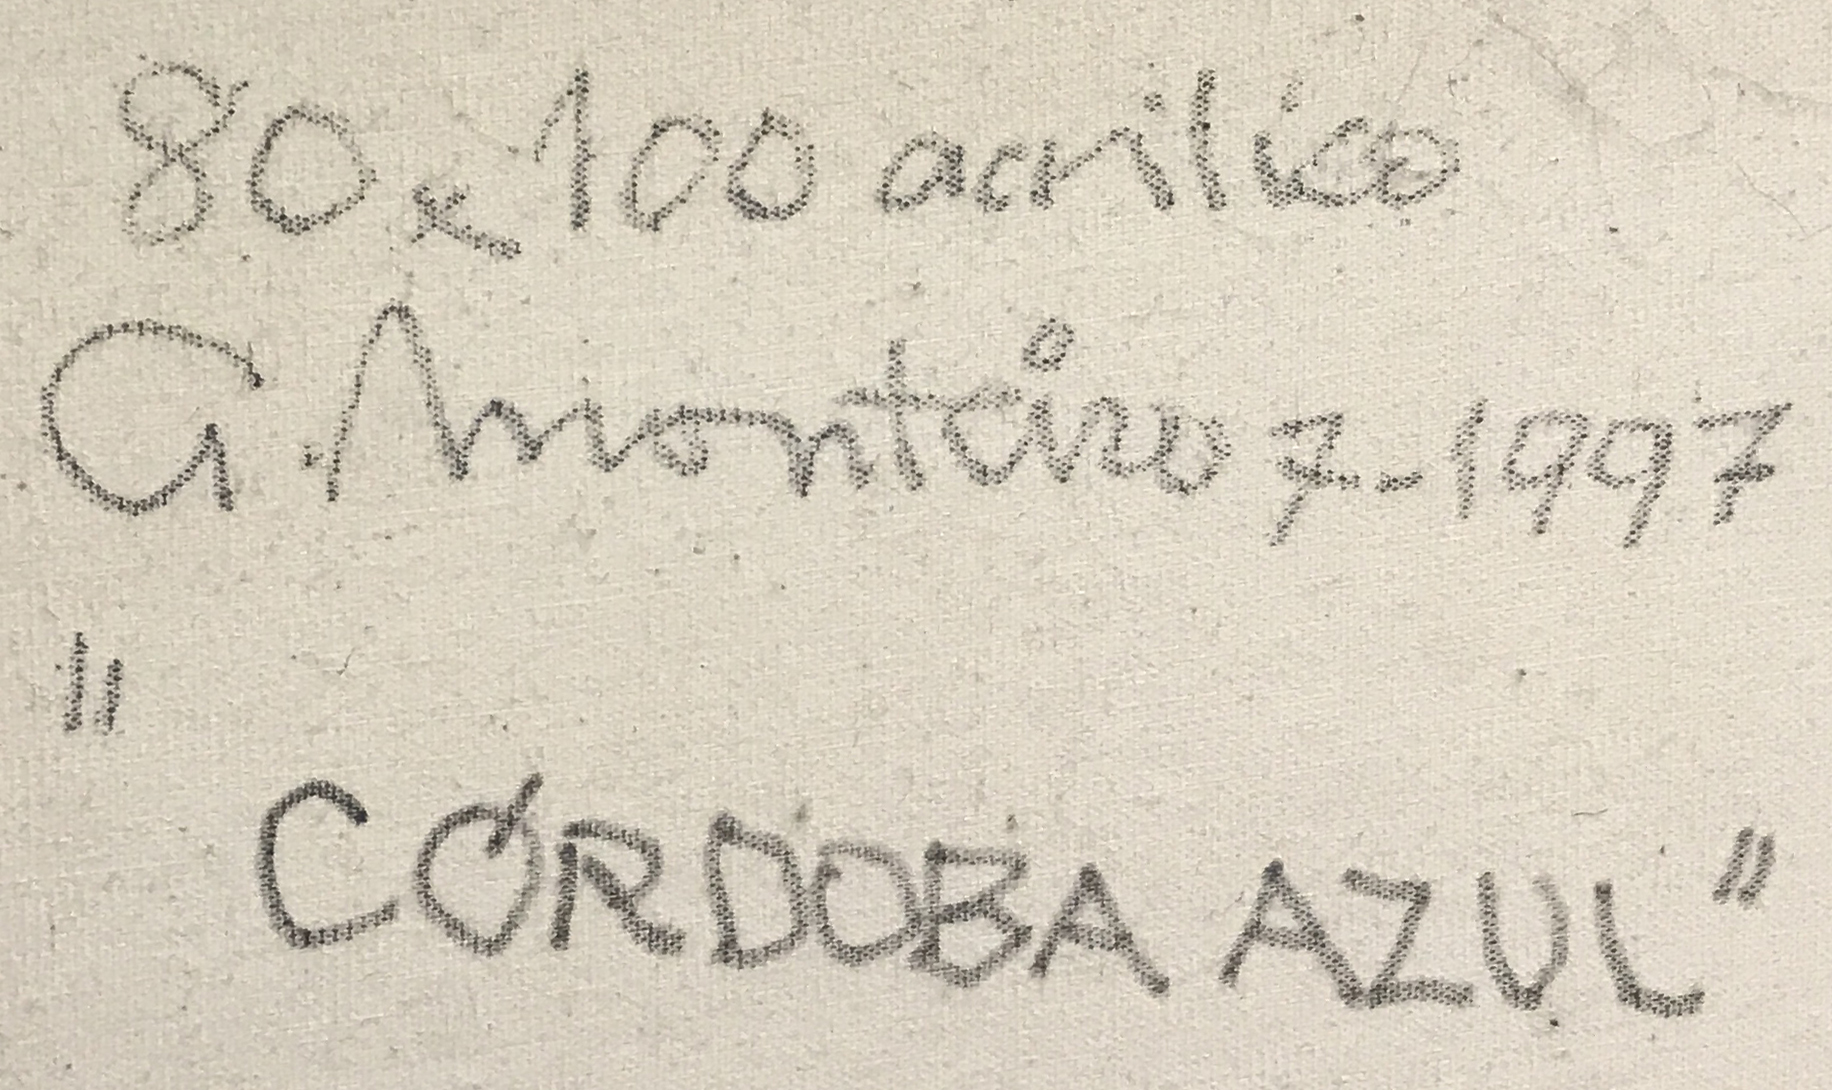 80x100 acrilico
G. Monteiro 7-1997
"
CÓRDOBA AZUL"